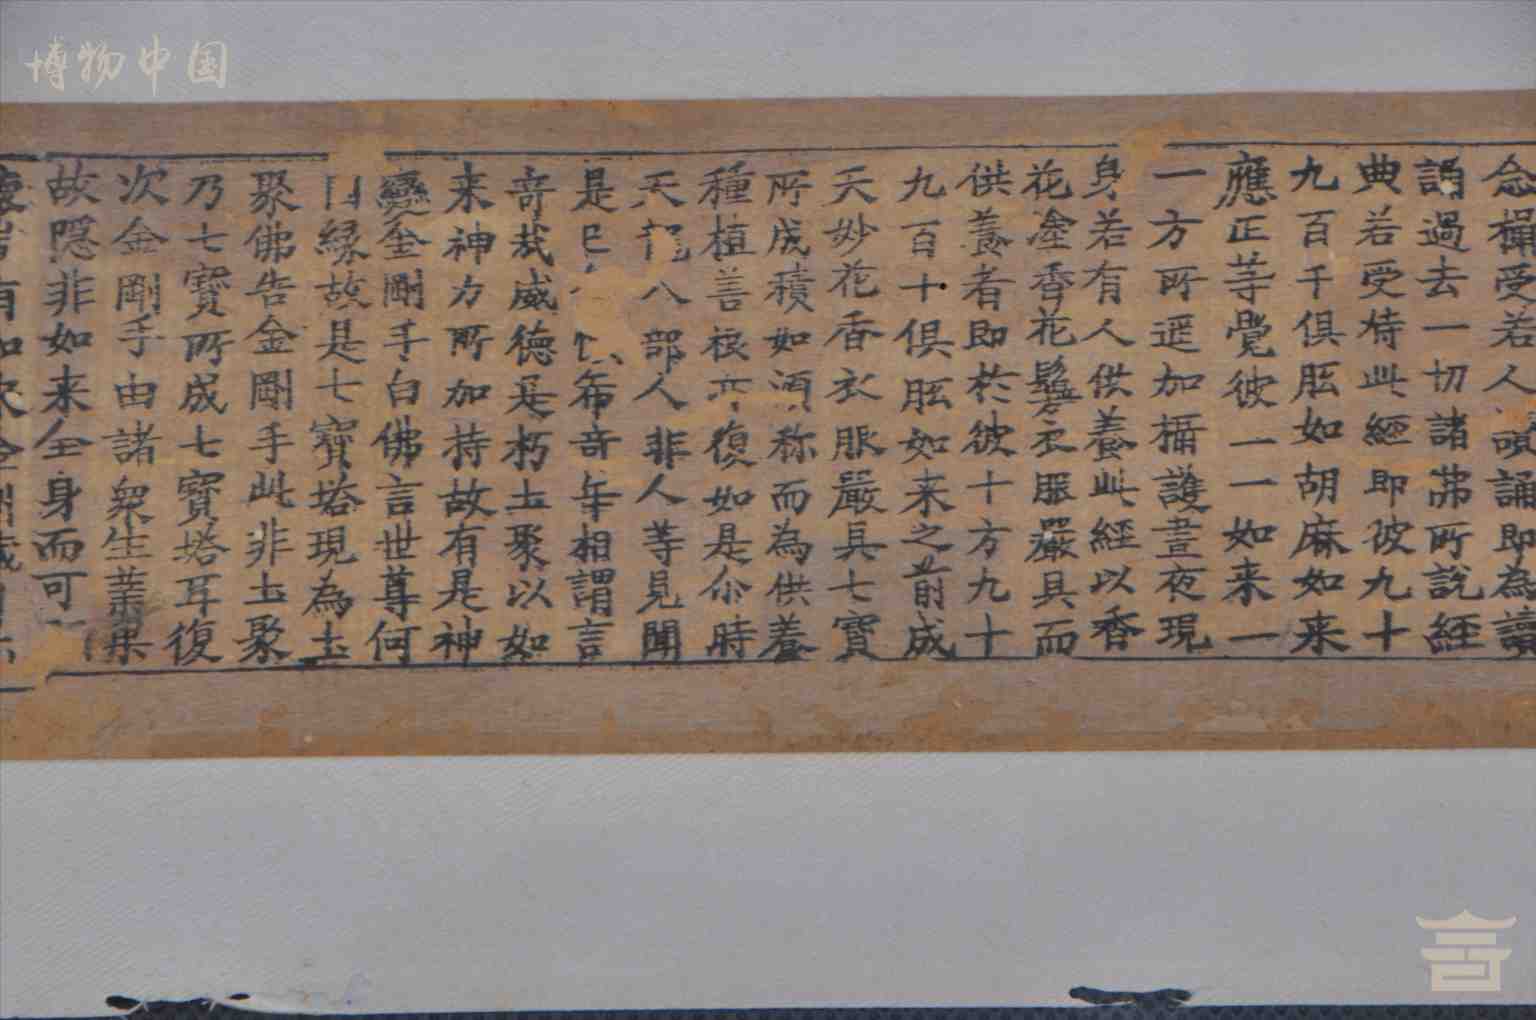 博物中国
念櫑受若人讀誦即為讀
誦過去一切諸弗所說經
典若受持此經即彼九十
九百千俱胝如胡麻如来
應正等覺彼一一如来一
一方所遲加攝護晝夜現
身若有人供養此經以香
花塗香花鬘衣服嚴具而
供養者即於彼十方九十
九百十俱胝如来之前成
天妙花香衣服嚴具七寶
所成積如須弥而為供養
種植善根亦復如是尒時
天龍八部人非人等見聞
是已 希奇 相謂言
奇哉威德是朽土聚以如
来神力所加持故有是神
變金剛手白佛言世尊何
因縁故是七寶塔現為土
聚佛告金剛手此非土聚
乃七寶所成七寶塔耳復
次金剛手由諸衆生業果
故隠非如来全身而可